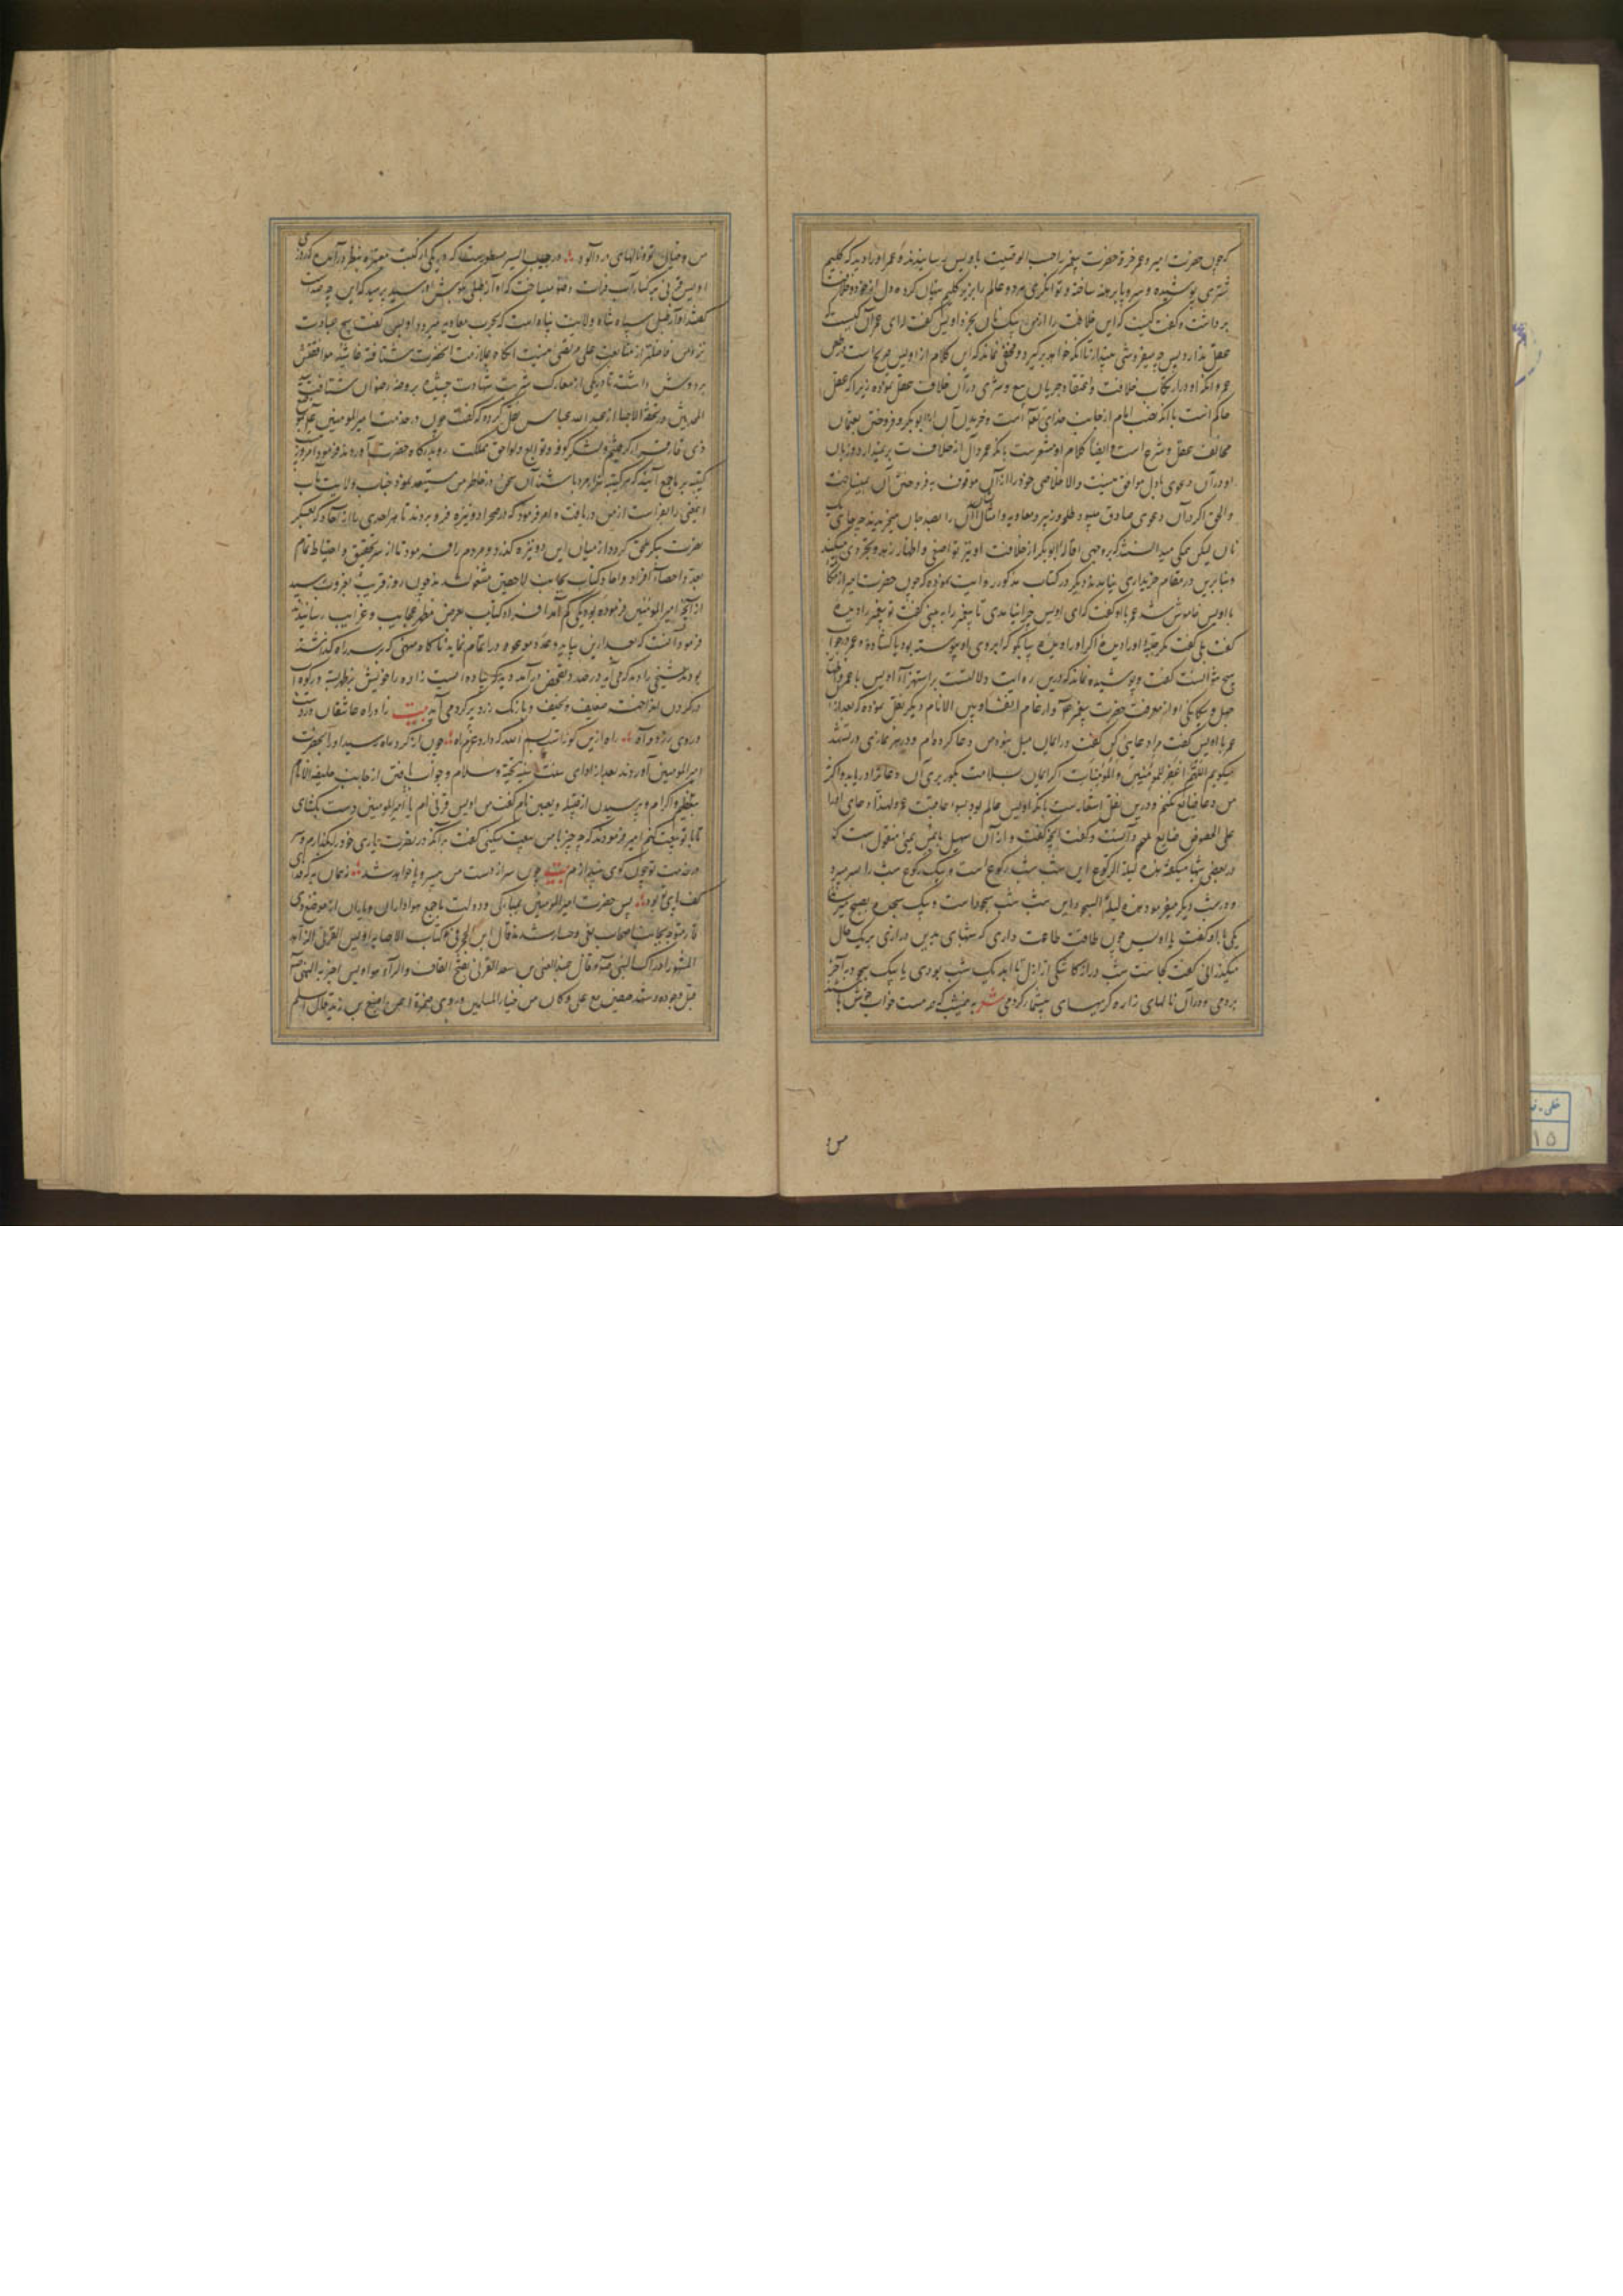 که چون حضرت امیر و عمر خرقه حضرت پیغمبر را حسب الوصیت باویس رسانیدند عمر او را دید که گلیم
شتری پوشیده و سر و پا برهنه ساخته و توانگری هژده عالم را در زیر گلیم پنهان کرده دل از خود و خلافت
برداشت و گفت کیست که این خلافت را از من بیک نان بخرد اویس گفت ای عمر آن کیست
عقل ندارد پس چه میفروشی بینداز تا هر که خواهد برگیرد و مخفی نماند که این کلام از اویس صریح است در
عمر و آنکه او در ارتکاب خلافت و اعتقاد جریان بیع و شری در آن خلاف عقل نموده زیرا که عقل
حاکم است بآنکه نصب امام از جانب خدای تعالی است و خریدن آن از ابوبکر و فروختن بعثمان
مخالف عقل و شرع است و ایضا کلام او مشعر است بآنکه عمر دل از خلافت بر نمیدارد و زبان
او در آن دعوی با دل موافق نیست والا خلاصی خود را از آن موقوف بفروختن آن نمیساخت
والحق اگر در آن دعوی صادق میبود طلحه و زبیر و معاویه و امثال ایشان آن را بصد جان میخریدند چه جای یک
نان لیکن همگی میدانستند که بر وجهی اقاله ابوبکر از خلافت او نیز تواضعی و اظهار زهد و تجردی میکند
و بنابرین در مقام خریداری نیامدند و دیگر در کتاب مذکور روایت نموده که چون حضرت امیر از مکالمه
با اویس خاموش شد عمر با او گفت که ای اویس چرا نیامدی تا پیغمبر را به بینی گفت تو پیغمبر را دیدهٔ
گفت بلی گفت مگر جبهٔ او را دیدهٔ اگر او را دیدهٔ بیا بگو که ابروی او پیوسته بود یا گشاده عمر در جواب
هیچ نتوانست گفت و پوشیده نماند که درین روایت دلالتست بر استهزاء اویس با عمر و اظهار
جهل و بیگانگی او از معرفت حضرت پیغمبر دیگر نقل نموده که بعد از آن
عمر با اویس گفت مرا دعایی کن گفت در ایمان میل نبود من دعا کرده‌ام و در هر نمازی در تشهد
میگویم اللهم اغفر للمؤمنین والمؤمنات اگر ایمان بسلامت بگور بری آن دعا ترا دریابد و اگر نه
من دعا ضایع نکنم و درین نقل اشعار است بآنکه اویس عالم بود بسوء عاقبت عمر و لهذا دعای او را
علی الخصوص ضایع دانست و گفت آنچه گفت و از آن سهیل یمنی منقول است که
در بعضی شبها میگفت هذه لیلة الرکوع این شب شب رکوع است و بیک رکوع شب را بسر میبرد
و در شب دیگر میفرمود هذه لیلة السجود این شب شب سجود است و بیک سجده بصبح میرساند
یکی با او گفت یا اویس چون طاقت طاعت داری که شبهای بدین درازی بر یک حال
میگذرانی گفت کجاست شب دراز کاشکی از ازل تا ابد یک شب بودی تا بیک سجده بآخر
بردمی و در آن نالهای زار و گریهای بیشمار کردمی شعر به نیم شب که همه مست خواب خوش باشند
من و
من و خیال تو و نالهای درد آلود در حبیب السیر مسطور است که در یکی از کتب معتبره بنظر درآمده که روزی
اویس قرنی بر کنار آب فرات وضو میساخت که آواز طبلی بگوش او رسید پرسید که این چه صداست
گفتند آواز طبل سپاه شاه ولایت پناه است که بحرب معاویه میرود اویس گفت هیچ عبادت
نزد من فاضلتر از متابعت علی مرتضی نیست آنگاه بملازمت آنحضرت شتافته غاشیه موافقتش
بر دوش داشته تا در یکی از معارک شربت شهادت چشیده بروضه رضوان شتافت
در تحفة الاحبا از عبدالله عباس نقل کرده که گفت چون در خدمت امیرالمؤمنین
ذی قار فرود آمد و لشکر کوفه و توابع و لواحق مملکت رو بدرگاه حضرت آوردند فرمود امروز
ابن عباس
یعنی را بفراست از من دریافت و امر فرمود که در صحرا دو نیزه فرو بردند تا هر احدی با از آحاد که بعسکر
نصرت پیکر ملحق گردد از میان این دو نیزه گذرد و مردم را فرمود تا از سر تحقیق و احتیاط تمام
بعد و احصاء افراد و آحاد کتایب بجانب لاحصین مشغول شدند چون روز قریب بغروب رسید
از آنچه امیرالمؤمنین فرموده بود یکی کم آمد افراد کتایب بعرض مظهر عجایب و غرایب رسانیدند
فرمود آنست که بعد ازین پیاید و عدد موعود را تمام نماید ناگاه که بر سر راه گذاشته
بود شخصی را دید که می‌آید در صدد تفحص درآمد دید که پیاده ایست زاد راه خویش بر ظهر بسته و رکوه
در گردن انداخته ضعیف و نحیف و با رنگ زرد پر گرد می‌آید بیت زاد راه عاشقان دردست
و روی زرد و آه راه ازین گونه است بسم الله که دارد عزم راه چون از گرد راه رسید او را بحضرت
امیرالمؤمنین آوردند بعد از ادای سنت سنیه تحیت و سلام و جواب یافتن از جانب خلیفة الانام
بتعظیم و اکرام و پرسیدن از قبیله و تعیین نام گفت من اویس قرنی‌ام یا امیرالمؤمنین دست بگشای
تا با تو بیعت کنم امیر فرمودند که بر چه چیز با من بیعت میکنی گفت بر آنکه در نصرت و یاری خود را نگذارم و سر
در خدمت تو چون گوی بیندازم بیت چون سر از دست من بی سر و پا خواهد شد زهمان به که فدای
کف پای تو بود پس حضرت امیرالمؤمنین بمبارکی و دولت با جمع هواداران و یاران از موضع ذی
قار متوجه بجانب اصحاب بغی و حسار شدند قال ابن الحجر فی کتاب الاصابه اویس القرنی الزاهد
المشهور ادرک النبی قال عبدالغنی بن سعد القرنی بفتح القاف والراء هو اویس اخبر به النبی
قبل وجوده و شهد صفین مع علی و کان من خیار المسلمین و روی ضمرة عن اصبغ بن زید قال اسلم